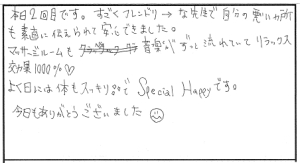 本日2回目です。すごくフレンドリーな先生で自分の悪い箇所
も素直に伝えられて安心できました。
マッサージルームも 音楽がずっと流れていてリラックス
効果1000%♡
よく日には体もスッキリ。。でSpecial Happyです。
今日もありがとうございました☺